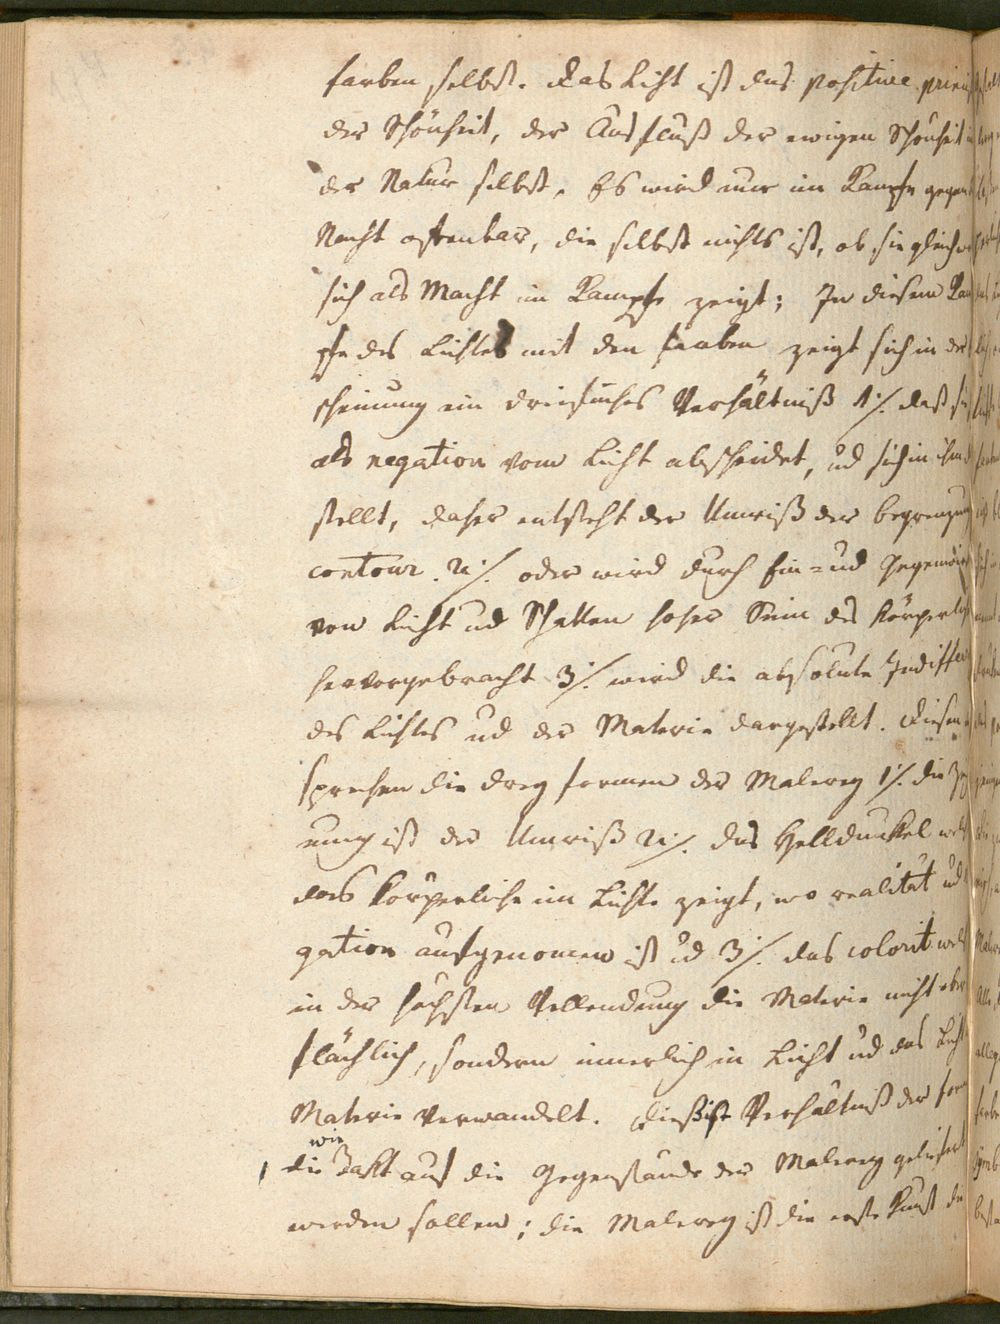 farben selbst. Das Licht ist das positive princi
der Schönheit, der Ausfluß der ewigen Schönheit i
der Natur selbst. Es wird nur im Kampfe gegen
Nacht offenbar, die selbst nichts ist, ob sie gleich
sich als Macht im Kampfe zeigt; In diesem Kam
pfe des Lichtes mit den farben zeigt sich in der
scheinung ein dreifaches Verhältniß 1/. daß sie
als negation vom Licht abscheidet, ud sich in ihm
stellt, daher entsteht der Umriß der begrenzung
contour. 2/. oder wird durch Ein= ud Gegenwirk
von Licht ud Schatten hoher Sinn des Körperlich
hervorgebracht 3/. wird die absolute Indiffere
des Lichtes ud der Materie dargestellt. Diesen
sprechen die drey formen der Malerey 1/. die Zei
nung ist der Umriß 2/. das Helldunkel welch
das Körperliche im Lichte zeigt, wo realität ud
gation aufgenomen ist ud 3/. das colorit welch
in der höchsten Vollendung die Materie nicht ober
flächlich, sondern innerlich in Licht ud das Licht
Materie verwandelt. Dieß ist Verhältniß der form
wie
die auf die Gegenstände der Malerey geliefert
werden sollen; die Malerey ist die erste Kunst die